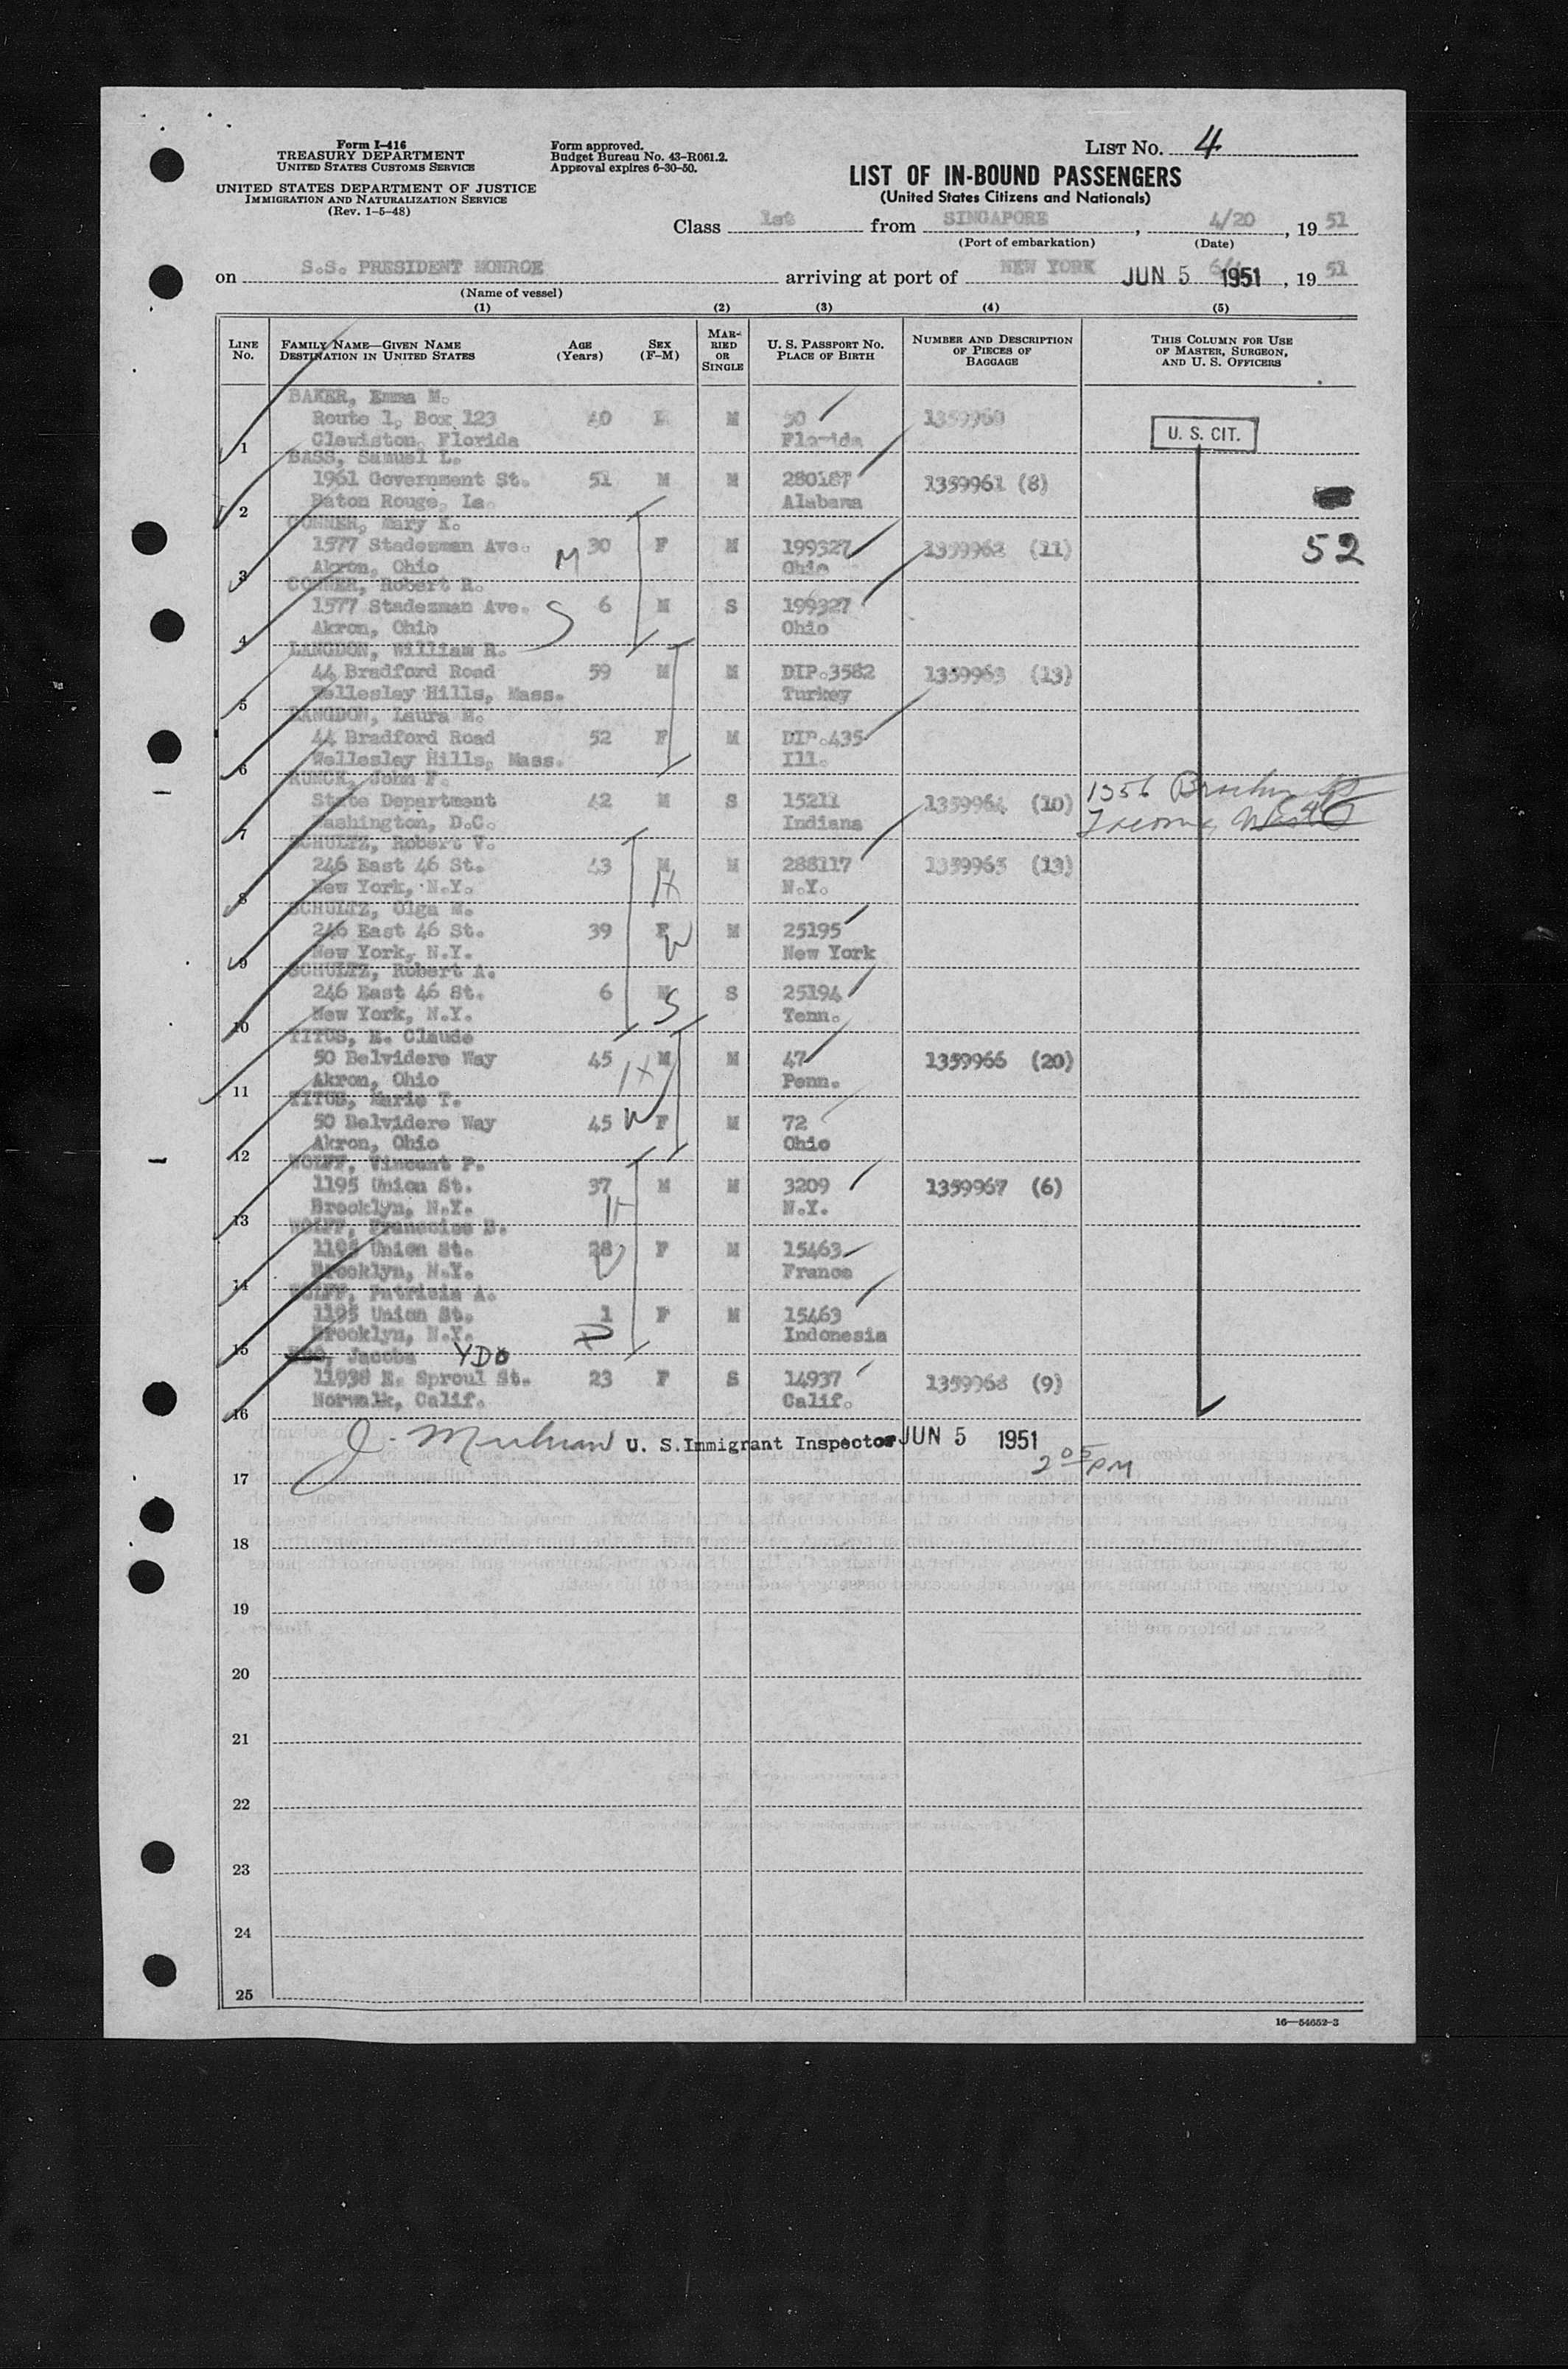 Form I-416
TREASURY DEPARTMENT
UNITED STATES CUSTOMS SERVICE
UNITED STATES DEPARTMENT OF JUSTICE
IMMIGRATION AND NATURALIZATION SERVICE
(Rev. 1-5-48)
Form approved.
Budget Bureau No. 43-R061.2.
Approval expires 6-30-50.
LIST NO. 4
LIST OF IN-BOUND PASSENGERS
(United States Citizens and Nationals)
Class 1st from SINGAPORE, 4/20, 1951
(Port of embarkation) (Date)
on S.S. PRESIDENT MONROE arriving at port of NEW YORK JUN 5 1951, 1951
(Name of vessel)
(1) (2) (3) (4) (5)
LINE No. FAMILY NAME—GIVEN NAME DESTINATION IN UNITED STATES AGE (Years) SEX (F-M) MARRIED OR SINGLE U. S. PASSPORT NO. PLACE OF BIRTH NUMBER AND DESCRIPTION OF PIECES OF BAGGAGE THIS COLUMN FOR USE OF MASTER, SURGEON, AND U. S. OFFICERS
BAKER, Emma M.
Route 1, Box 123 40 M 50 1359960
1 Clewiston, Florida Florida U. S. CIT.
BASS, Samuel L.
1961 Government St. 51 M M 280187 1359961 (8)
2 Baton Rouge, La. Alabama
CONNER, Mary K.
1577 Stadezman Ave. M 30 F M 199327 1359962 (11) 52
3 Akron, Ohio Ohio
CONNER, Robert R.
1577 Stadezman Ave. S 6 M S 199327
4 Akron, Ohio Ohio
LANGDON, William R.
44 Bradford Road 59 M M DIP.3582 1359963 (13)
5 Wellesley Hills, Mass. Turkey
LANGDON, Laura M.
44 Bradford Road 52 F M DIP.435
6 Wellesley Hills, Mass. Ill.
RUNCK, John F.
State Department 42 M S 15211 1359964 (10) 1356
7 Washington, D.C. Indiana Tacoma
SCHULTZ, Robert V.
246 East 46 St. 43 M M 288117 1359965 (13)
8 New York, N.Y. H N.Y.
SCHULTZ, Olga M.
246 East 46 St. 39 F W M 25195
9 New York, N.Y. New York
SCHULTZ, Robert A.
246 East 46 St. 6 M S S 25194
10 New York, N.Y. Tenn.
TITUS, E. Claude
50 Belvidere Way 45 M H M 47 1359966 (20)
11 Akron, Ohio Penn.
TITUS, Marie T.
50 Belvidere Way 45 W F M 72
12 Akron, Ohio Ohio
WOLFF, Vincent P.
1195 Union St. 37 M M 3209 1359967 (6)
13 Brooklyn, N.Y. H N.Y.
WOLFF, Francoise B.
1195 Union St. 28 F M 15463
14 Brooklyn, N.Y. W France
WOLFF, Patricia A.
1195 Union St. 1 F M 15463
15 Brooklyn, N.Y. D Indonesia
Jacoba YDO
11938 E. Sproul St. 23 F S 14937 1359968 (9)
16 Norwalk, Calif. Calif.
J. U. S. Immigrant Inspector JUN 5 1951
2 05 PM
17
18
19
20
21
22
23
24
25
16—54652-3